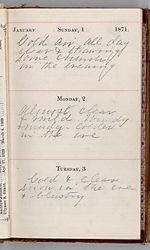 JANUARY SUNDAY, 1 1871.
Cold Air All day
clear &
home church
in the evening
MONDAY, 2
Almost clear
& mild Windy
& much colder
in the eve
TUESDAY, 3
Cold & clear
snow in the eve
& blustry